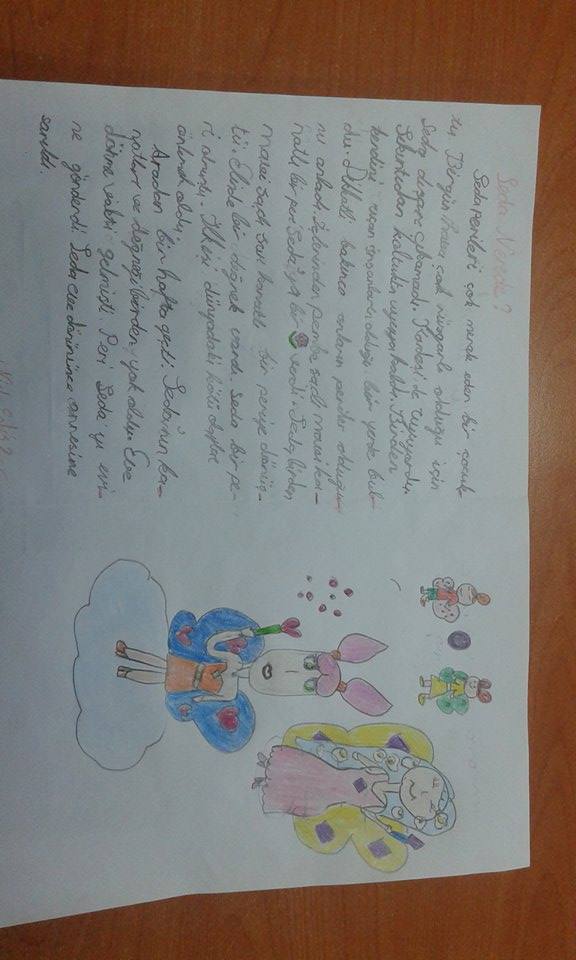 Seda Nerede?
Seda perileri çok merak eden bir çocuk-
tu. Birgün hava çok rüzgarlı olduğu için
Seda dışarı çıkamadı. Kardeşi de uyuyordu.
Sıkıntıdan koltukta uyuya kaldı. Birden
kendini uçan insanların olduğu bir yerde bul-
du. Dikkatli bakınca onların periler olduğu-
nu anladı. İçlerinden pembe saçlı mavi ka-
natlı bir peri Seda'ya bir verdi. Seda birden
mavi saçlı sarı kanatlı bir periye dönüş-
tü. Elinde bir değnek vardı. Seda bir pe-
ri olmuştu. İlk işi dünyadaki kötü olayları
önlemek oldu.
Aradan bir hafta geçti. Seda'nın ka-
natları ve değneği birden yok oldu. Eve
dönme vakti gelmişti. Peri Seda'yı evi-
ne gönderdi. Seda eve dönünce annesine
sarıldı.